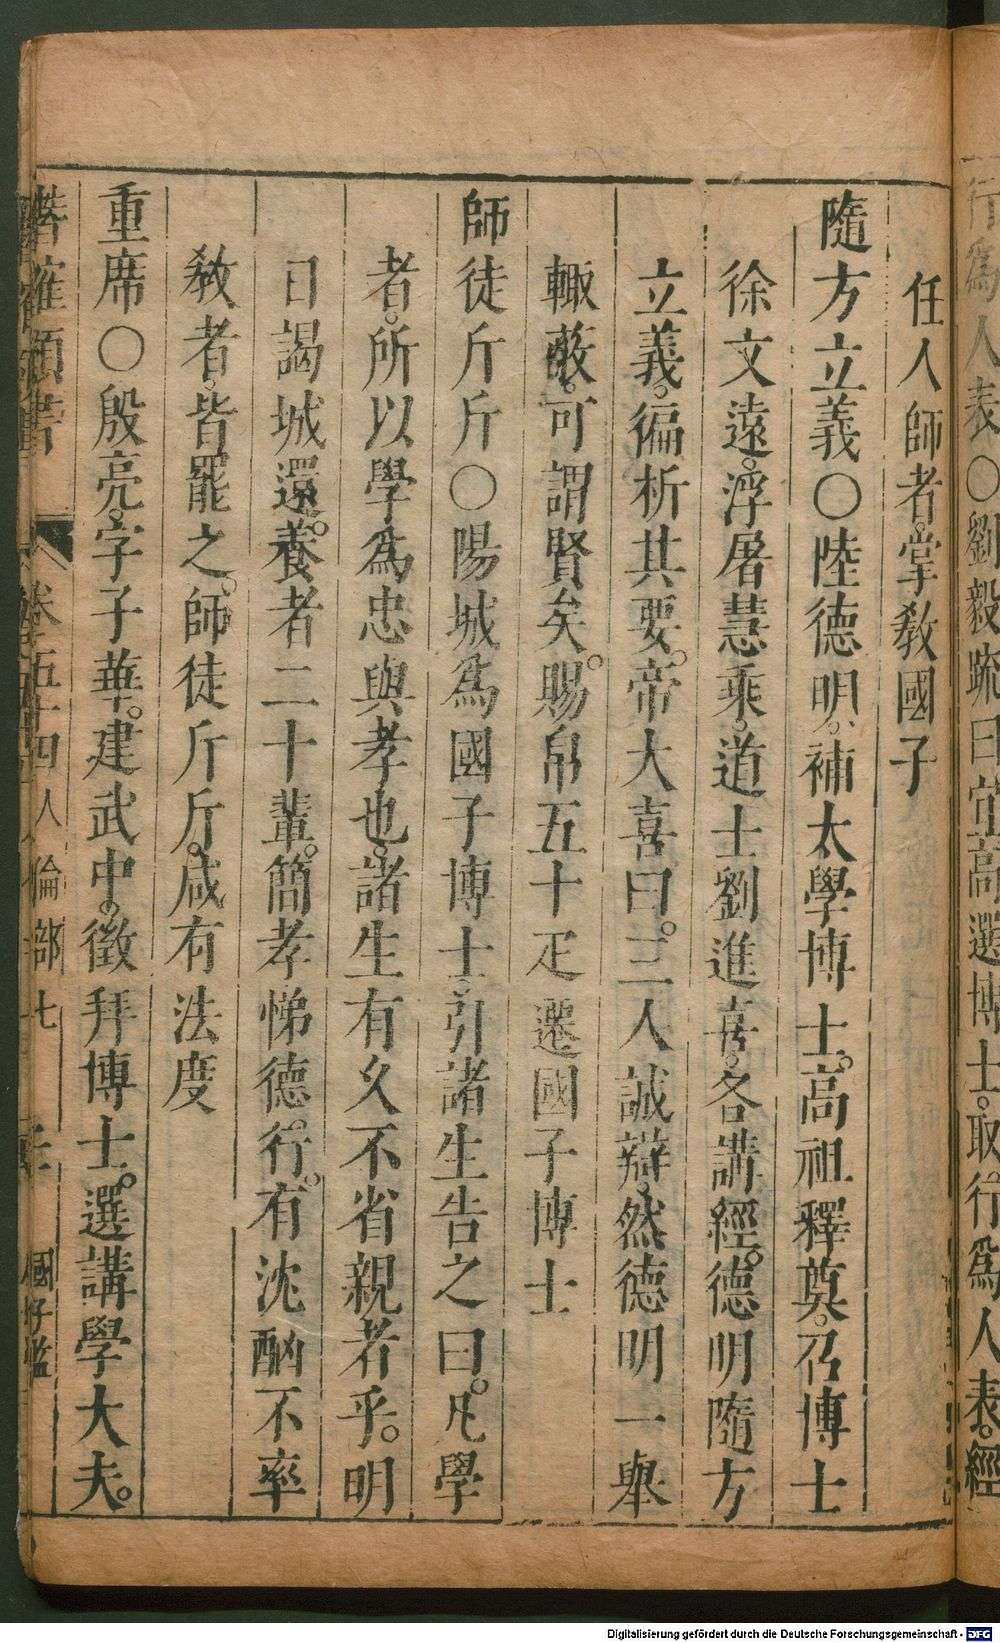 行為人表○劉毅疏曰宜高選博士取行為人表經
任人師者掌教國子
隨方立義○陸德明補太學博士。高祖釋奠。召博士
徐文遠。浮屠慧乘。道士劉進喜。各講經。德明隨方
立義。徧析其要。帝大喜曰。三人誠辯。然德明一舉
輒蔽。可謂賢矣。賜帛五十疋遷國子博士
師徒斤斤○陽城為國子博士。引諸生告之曰。凡學
者。所以學為忠與孝也。諸生有久不省親者乎。明
日謁城還。養者二十輩。簡孝悌德行。有沈酗不率
教者。皆罷之。師徒斤斤。咸有法度
重席○殷亮。字子華。建武中。徵拜博士。選講學大夫。
卷五十四 人倫部七
Digitalisierung gefördert durch die Deutsche Forschungsgemeinschaft - DFG